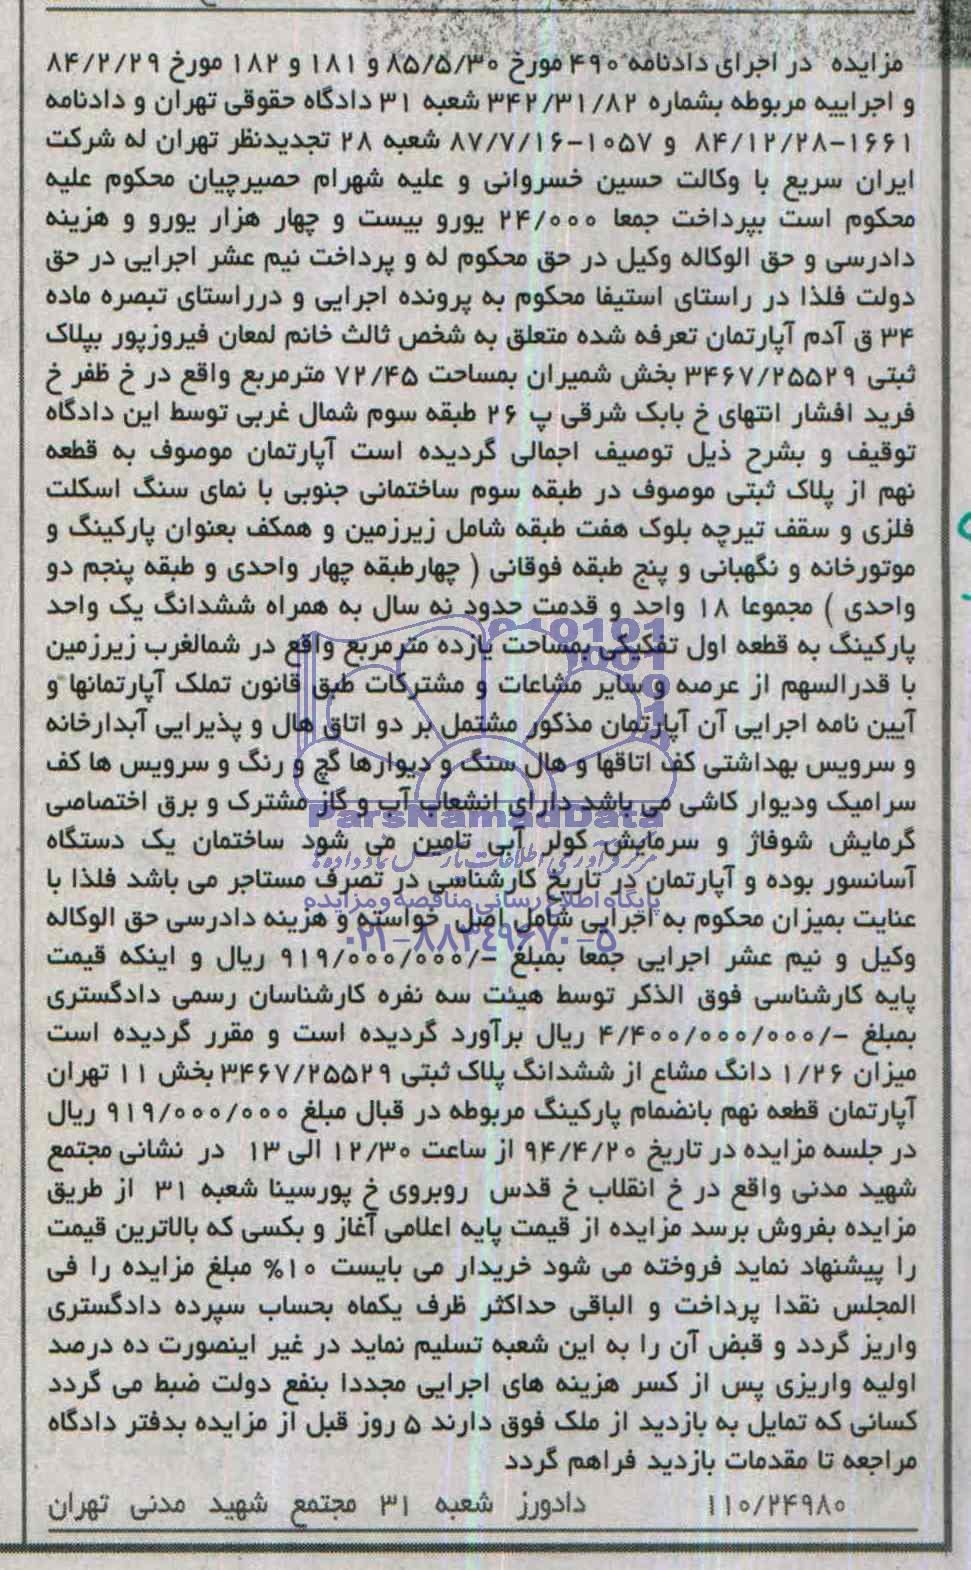 مزایده در اجرای دادنامه ۴۹۰ مورخ ۸۵/۵/۳۰ و ۱۸۱ و ۱۸۲ مورخ ۸۴/۲/۲۹
و اجراییه مربوطه بشماره ۳۴۲/۳۱/۸۲ شعبه ۳۱ دادگاه حقوقی تهران و دادنامه
۱۶۶۱-۸۴/۱۲/۲۸ و ۱۰۵۷-۸۷/۷/۱۶ شعبه ۲۸ تجدیدنظر تهران له شرکت
ایران سریع با وکالت حسین خسروانی و علیه شهرام حصیرچیان محکوم علیه
محکوم است بپرداخت جمعا ۲۴/۰۰۰ یورو بیست و چهار هزار یورو و هزینه
دادرسی و حق الوکاله وکیل در حق محکوم له و پرداخت نیم عشر اجرایی در حق
دولت فلذا در راستای استیفا محکوم به پرونده اجرایی و درراستای تبصره ماده
۳۴ ق آدم آپارتمان تعرفه شده متعلق به شخص ثالث خانم لمعان فیروزپور بپلاک
ثبتی ۳۴۶۷/۲۵۵۲۹ بخش شمیران بمساحت ۷۲/۴۵ مترمربع واقع در خ ظفر خ
فرید افشار انتهای خ بابک شرقی پ ۲۶ طبقه سوم شمال غربی توسط این دادگاه
توقیف و بشرح ذیل توصیف اجمالی گردیده است آپارتمان موصوف به قطعه
نهم از پلاک ثبتی موصوف در طبقه سوم ساختمانی جنوبی با نمای سنگ اسکلت
فلزی و سقف تیرچه بلوک هفت طبقه شامل زیرزمین و همکف بعنوان پارکینگ و
موتورخانه و نگهبانی و پنج طبقه فوقانی ( چهارطبقه چهار واحدی و طبقه پنجم دو
واحدی ) مجموعا ۱۸ واحد و قدمت حدود نه سال به همراه ششدانگ یک واحد
پارکینگ به قطعه اول تفکیکی بمساحت یازده مترمربع واقع در شمالغرب زیرزمین
با قدرالسهم از عرصه و سایر مشاعات و مشترکات طبق قانون تملک آپارتمانها و
آیین نامه اجرایی آن آپارتمان مذکور مشتمل بر دو اتاق هال و پذیرایی آبدارخانه
و سرویس بهداشتی کف اتاقها و هال سنگ و دیوارها گچ و رنگ و سرویس ها کف
سرامیک ودیوار کاشی می باشد دارای انشعاب آب و گاز مشترک و برق اختصاصی
ParsNamadData
گرمایش شوفاژ و سرمایش کولر آبی تامین می شود ساختمان یک دستگاه
مرکز فرآوری اطلاعات پارس نماد داده ها
آسانسور بوده و آپارتمان در تاریخ کارشناسی در تصرف مستاجر می باشد فلذا با
پایگاه اطلاع رسانی مناقصه و مزایده
عنایت بمیزان محکوم به اجرایی شامل اصل خواسته و هزینه دادرسی حق الوکاله
۰۲۱-۸۸۳۴۹۶۷۰-۵
وکیل و نیم عشر اجرایی جمعا بمبلغ -/۹۱۹/۰۰۰/۰۰۰ ریال و اینکه قیمت
پایه کارشناسی فوق الذکر توسط هیئت سه نفره کارشناسان رسمی دادگستری
بمبلغ -/۴/۴۰۰/۰۰۰/۰۰۰ ریال برآورد گردیده است و مقرر گردیده است
میزان ۱/۲۶ دانگ مشاع از ششدانگ پلاک ثبتی ۳۴۶۷/۲۵۵۲۹ بخش ۱۱ تهران
آپارتمان قطعه نهم بانضمام پارکینگ مربوطه در قبال مبلغ ۹۱۹/۰۰۰/۰۰۰ ریال
در جلسه مزایده در تاریخ ۹۴/۴/۲۰ از ساعت ۱۲/۳۰ الی ۱۳ در نشانی مجتمع
شهید مدنی واقع در خ انقلاب خ قدس روبروی خ پورسینا شعبه ۳۱ از طریق
مزایده بفروش برسد مزایده از قیمت پایه اعلامی آغاز و بکسی که بالاترین قیمت
را پیشنهاد نماید فروخته می شود خریدار می بایست ۱۰% مبلغ مزایده را فی
المجلس نقدا پرداخت و الباقی حداکثر ظرف یکماه بحساب سپرده دادگستری
واریز گردد و قبض آن را به این شعبه تسلیم نماید در غیر اینصورت ده درصد
اولیه واریزی پس از کسر هزینه های اجرایی مجددا بنفع دولت ضبط می گردد
کسانی که تمایل به بازدید از ملک فوق دارند ۵ روز قبل از مزایده بدفتر دادگاه
مراجعه تا مقدمات بازدید فراهم گردد
۱۱۰/۲۴۹۸۰ دادورز شعبه ۳۱ مجتمع شهید مدنی تهران